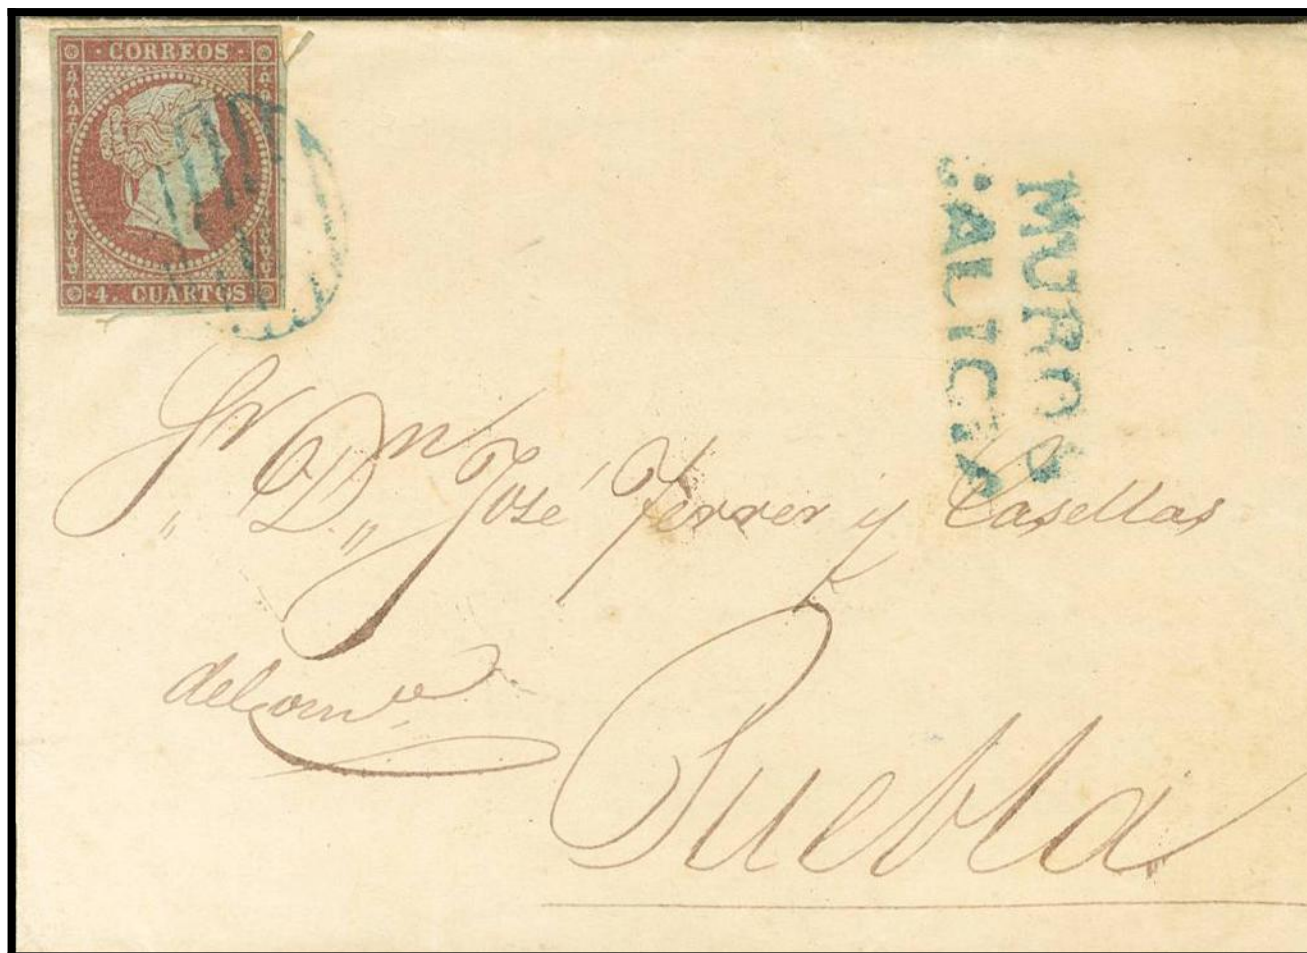 · CORREOS ·
· 4. CUARTOS ·
MUROS
GALICIA
Sr. Dn. José Ferrer y Casellas
del com.º
Puebla